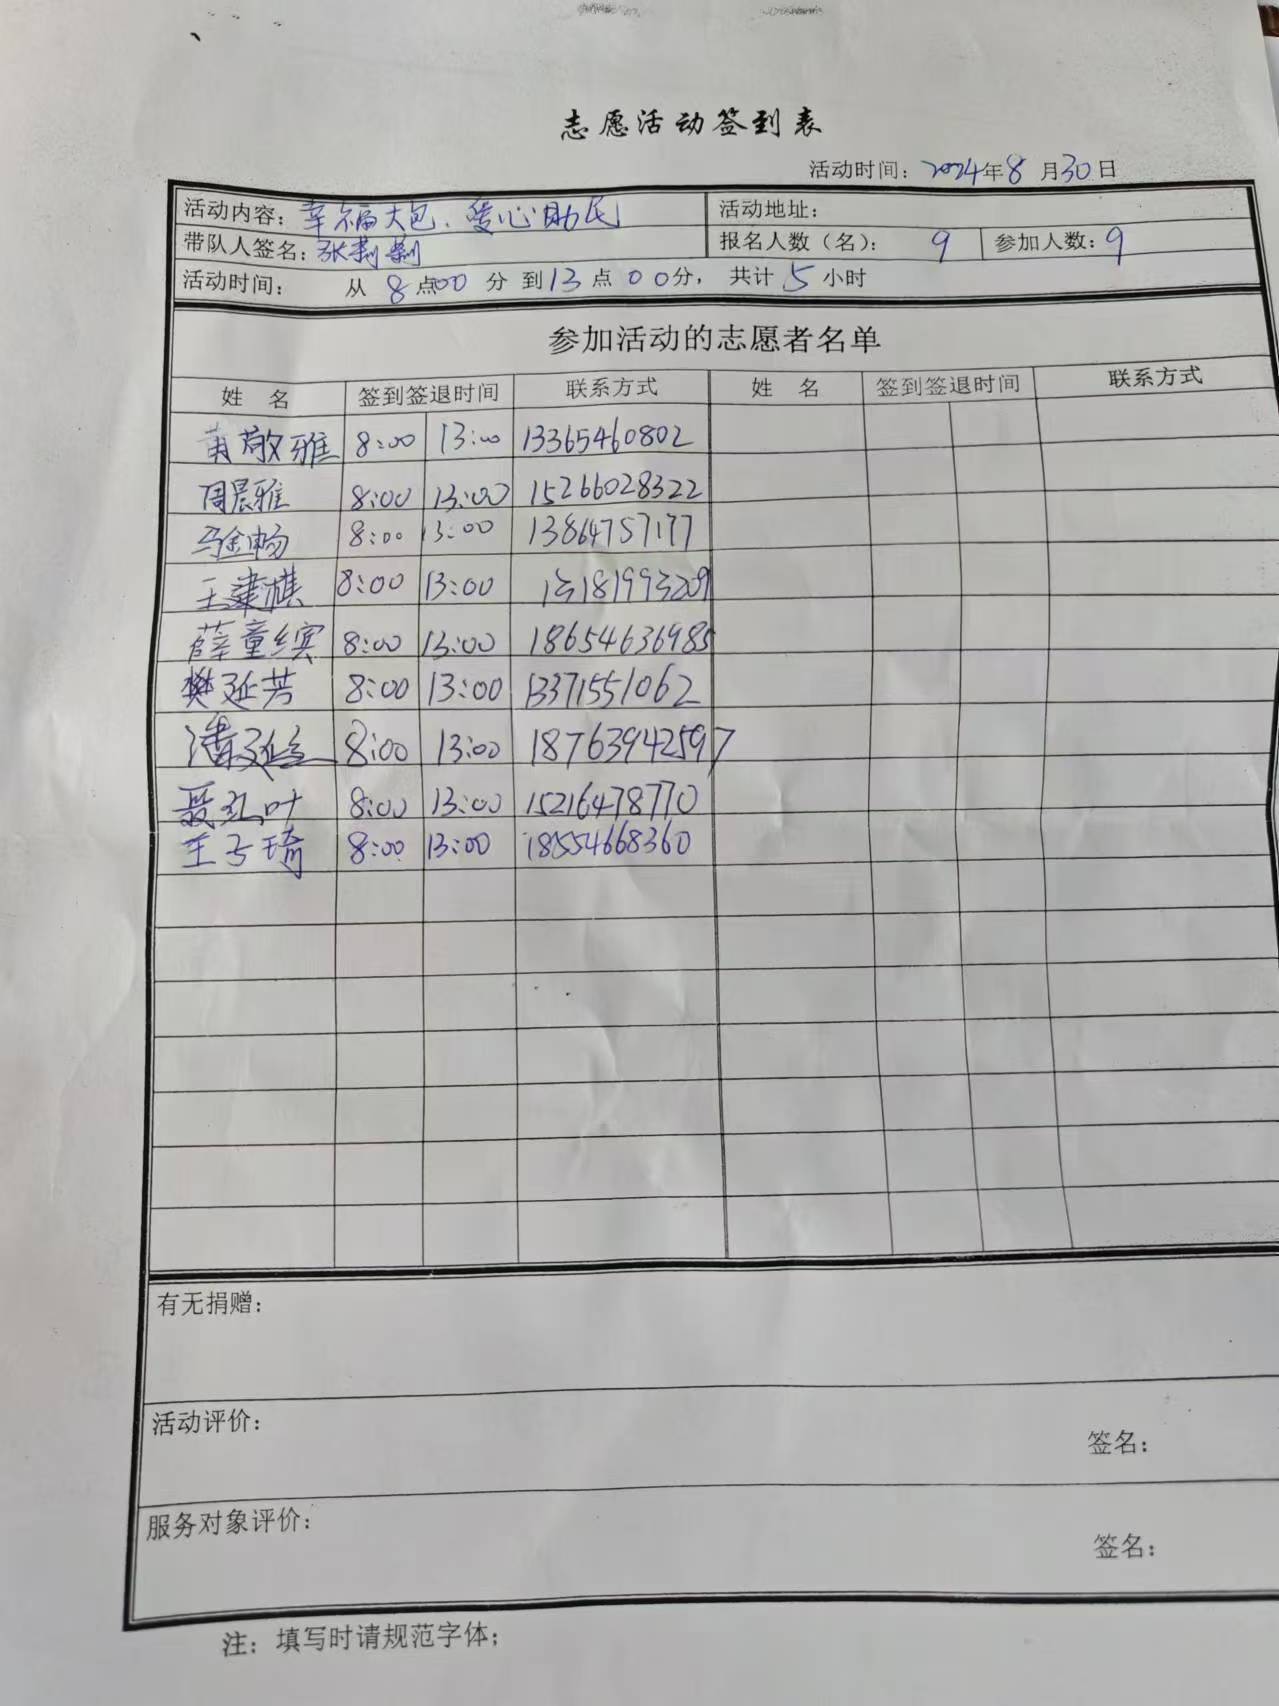 志愿活动签到表
活动时间：2024年8月30日
活动内容：幸福大包、爱心助民 活动地址：
带队人签名：张莉莉 报名人数（名）：9 参加人数：9
活动时间： 从 8点00分 到13点00分， 共计5小时
参加活动的志愿者名单
姓 名 签到签退时间 联系方式 姓 名 签到签退时间 联系方式
黄敬雅 8:00 13:00 13365460802
周晨雅 8:00 13:00 15266028322
马金畅 8:00 13:00 13864757177
王建棋 8:00 13:00
薛童缤 8:00 13:00 18654636985
樊延芳 8:00 13:00 13371551062
8:00 13:00 18763942597
聂红叶 8:00 13:00 15216478770
王子琦 8:00 13:00 18554668360
有无捐赠：
活动评价：
签名：
服务对象评价：
签名：
注：填写时请规范字体；